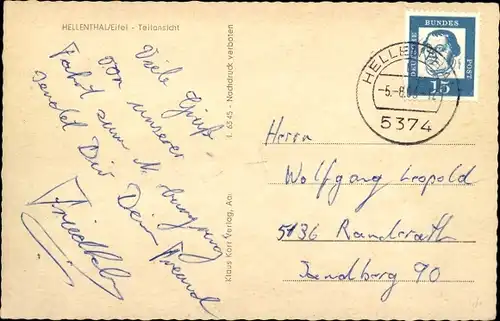 HELLENTHAL/Eifel - Teilansicht
Viele Grüße
von unserer
Fahrt zum
sendet Dir Dein Freund
Friedhelm
L 6345 - Nachdruck verboten
Klaus Karl Verlag, Aa
DEUTSCHE BUNDESPOST
15
HELLENTHAL
5374
Herrn
Wolfgang Leopold
5136 Randerath
Sandberg 90